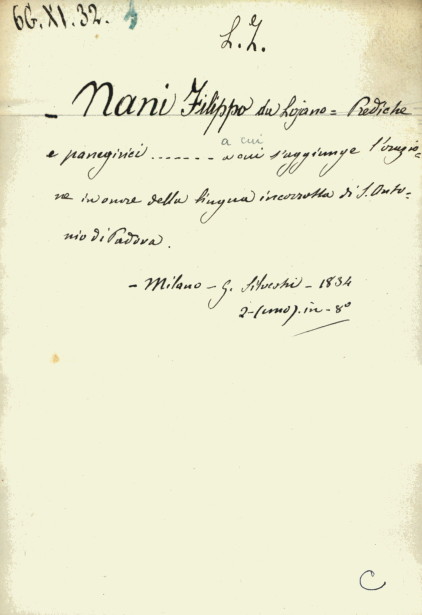 6G.XI.32.
L. Z.
- Nani Filippo da Lojano = Prediche
a cui
e panegirici ....... a cui s'aggiunge l'orazio-
ne in onore della lingua incorrotta di S. Anto-
nio di Padova.
- Milano - G. Silvestri - 1834
2-(uno). in - 8º
C